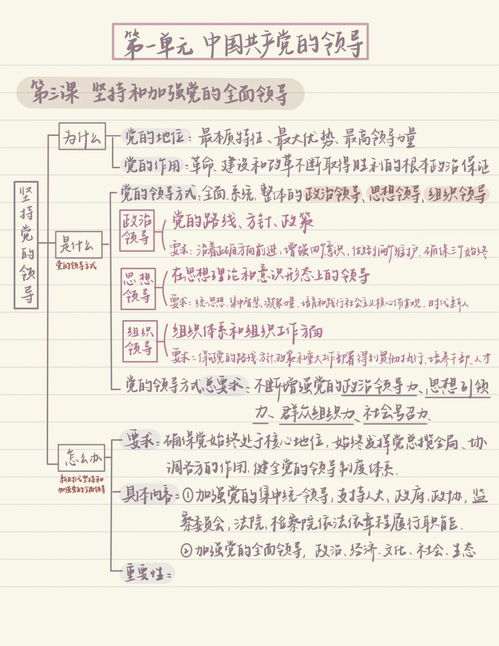 第一单元 中国共产党的领导
第三课 坚持和加强党的全面领导
坚持党的领导
为什么
党的地位：最本质特征、最大优势、最高领导力量
党的作用：革命、建设和改革不断取得胜利的根本政治保证
是什么
党的领导方式
党的领导方式：全面、系统、整体的政治领导、思想领导、组织领导
政治领导
党的路线、方针、政策
要求：沿着正确方向前进，增强四个意识，做到两个维护，确保三个始终
思想领导
在思想理论和意识形态上的领导
要求：统一思想、凝聚 培育和践行社会主义核心价值观，时代新人
组织领导
组织体系和组织工作方面
要求：保证党的路线、方针政策和重大工作部署得到贯彻执行，培养干部、人才
党的领导方式总要求：不断增强党的政治领导力、思想引领
力、群众组织力、社会号召力.
怎么办
坚持和
加强党的全面领导
要求：确保党始终处于核心地位，始终发挥党总揽全局、协
调各方的作用，健全党的领导制度体系.
具体内容：①加强党的集中统一领导，支持人大，政府，政协，监
察委员会，法院，检察院依法依章程履行职能.
②加强党的全面领导，政治、经济、文化、社会、生态
重要性：